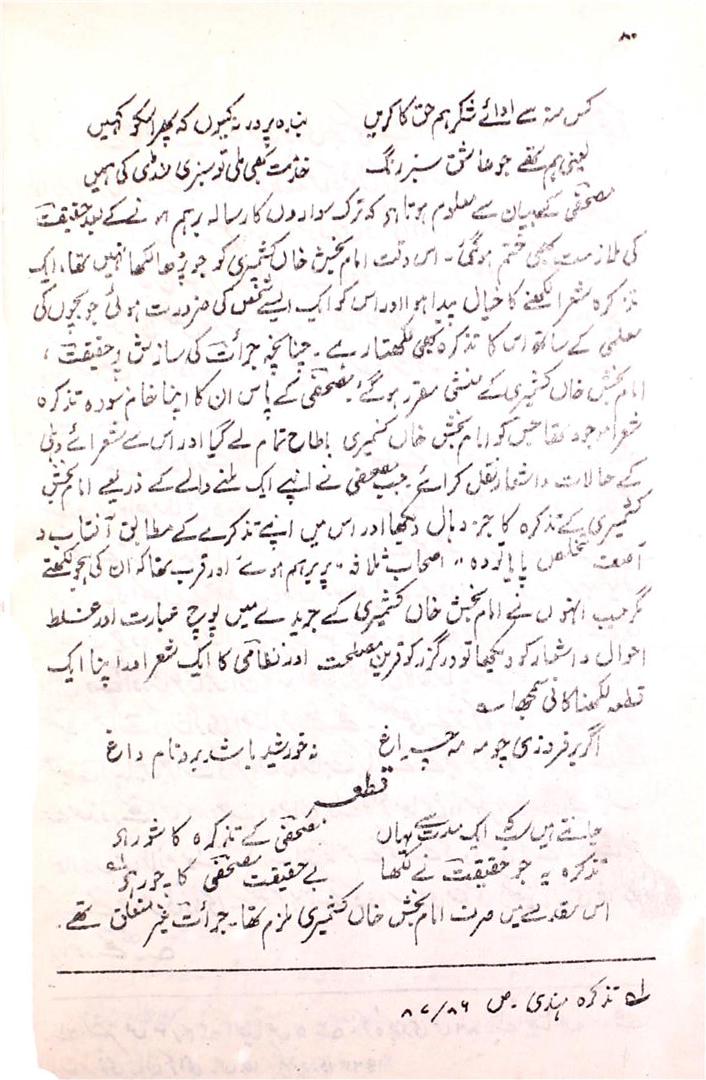 ۸۲
کس منہ سے ادائے شکر ہم حق کا کریں بندہ پرور نہ کیوں کہ پھر اسکو کہیں
یعنی ہم تھے جو عاشق سبز رنگ خدمت بھی ملی تو سبزی منڈی کی ہمیں
مصحفی کے بیان سے معلوم ہوتا ہو کہ ترک سواروں کا رسالہ برہم ہونے کے بعد حقیقت
کی ملازمت بھی ختم ہوگئی۔ اس وقت امام بخش خاں کشمیری کو جو پڑھا لکھا نہیں تھا، ایک
تذکرہ شعرا لکھنے کا خیال پیدا ہوا اور اس کو ایک ایسے شخص کی ضرورت ہوئی جو بچوں کی
معلمی کے ساتھ اس کا تذکرہ بھی لکھتا رہے۔ چنانچہ جرأت کی سازش پر حقیقت،
امام بخش خاں کشمیری کے منشی مقرر ہوگئے، مصحفی کے پاس ان کا اپنا خام مسودہ تذکرہ
شعرا موجود تھا جس کو امام بخش خاں کشمیری بالحاح تمام لے گیا اور اس سے شعرائے دہلی
کے حالات و اشعار نقل کرائے۔ جب مصحفی نے اپنے ایک ملنے والے کے ذریعے امام بخش
کشمیری کے تذکرہ کا جزو وہاں دیکھا اور اس میں اپنے تذکرے کے مطابق آفتاب و
آصف تخلص پایا تو وہ "اصحاب ثلاثہ" پر برہم ہوے اور قریب تھا کہ ان کی ہجو لکھتے
مگر جب انہوں نے امام بخش خاں کشمیری کے جریدے میں پوچ عبارت اور غلط
احوال و اشعار کو دیکھا تو درگزر کو قرین مصلحت اور نظامی کا ایک شعر اور اپنا ایک
قطعہ لکھنا کافی سمجھا ہے
اگر برفروزی چو مہ صد چراغ نہ خورشید باشد برو نام داغ
قطعہ
جانتے ہیں سب کہ ایک مدت سے یہاں مصحفی کے تذکرہ کا شور ہو
تذکرہ یہ جو حقیقت نے لکھا بے حقیقت مصحفی کا چور ہو ۱؎
اس مقدمے میں صرف امام بخش خاں کشمیری ملزم تھا۔ جرأت غیر متعلق تھے۔
۱؎ تذکرہ ہندی۔ ص ۸۶/۸۷